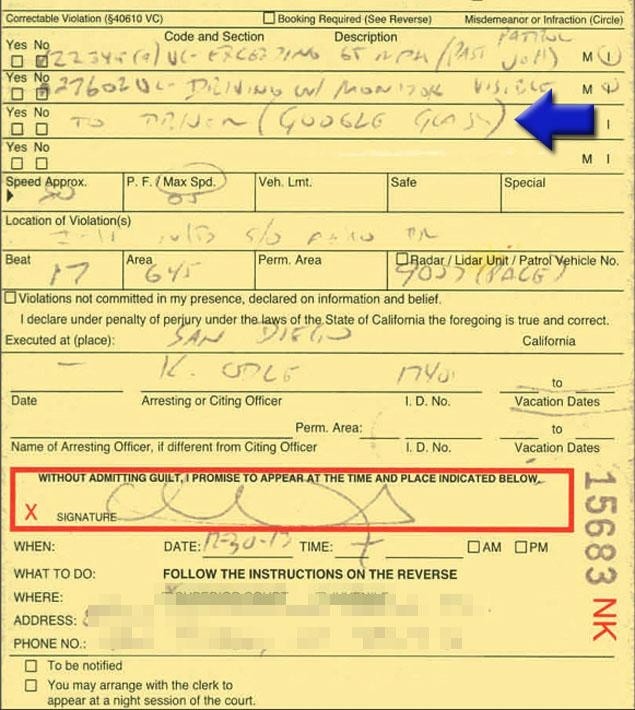 Correctable Violation (§40610 VC) Booking Required (See Reverse) Misdemeanor or Infraction (Circle)
Code and Section Description PATROL
Yes No 22349(a) VC- EXCEEDING 65 MPH (PAST M I
Yes No 27602 VC- DRIVING W/ MONITOR VISIBLE M I
Yes No TO DRIVER (GOOGLE GLASS) I
Yes No M I
Speed Approx. P. F. / Max Spd. Veh. Lmt. Safe Special
65
Location of Violation(s)
Beat Area Perm. Area Radar / Lidar Unit / Patrol Vehicle No.
17 645 (PACE)
Violations not committed in my presence, declared on information and belief.
I declare under penalty of perjury under the laws of the State of California the foregoing is true and correct.
Executed at (place): SAN DIEGO California
K. ODLE to
Date Arresting or Citing Officer I. D. No. Vacation Dates
Perm. Area: to
Name of Arresting Officer, if different from Citing Officer I. D. No. Vacation Dates
WITHOUT ADMITTING GUILT, I PROMISE TO APPEAR AT THE TIME AND PLACE INDICATED BELOW.
X SIGNATURE
WHEN: DATE: TIME: AM PM
WHAT TO DO: FOLLOW THE INSTRUCTIONS ON THE REVERSE
WHERE: SUPERIOR COURT JUVENILE
ADDRESS:
PHONE NO.:
To be notified
You may arrange with the clerk to
appear at a night session of the court.
15683 NK